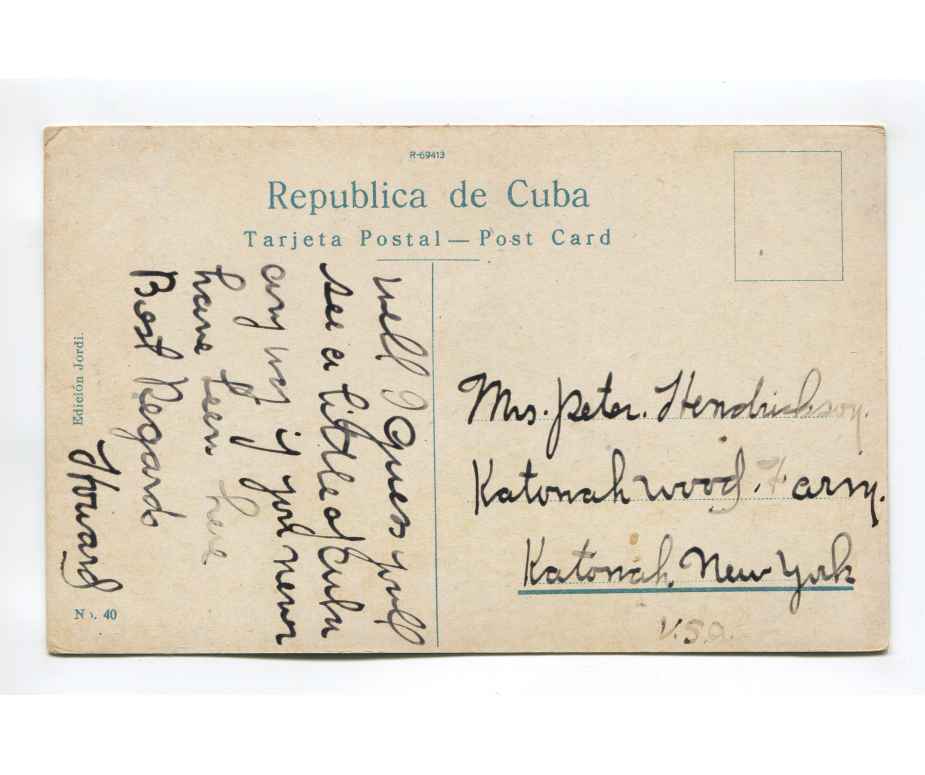 R-69413
Republica de Cuba
Tarjeta Postal — Post Card
well I guess youll
see a little of Cuba
any way if you never
have been here
Best Regards
Howard
Edición Jordi.
No. 40
Mrs. Peter. Hendrickson.
Katonah wood. Farm.
Katonah, New York
U.S.A.